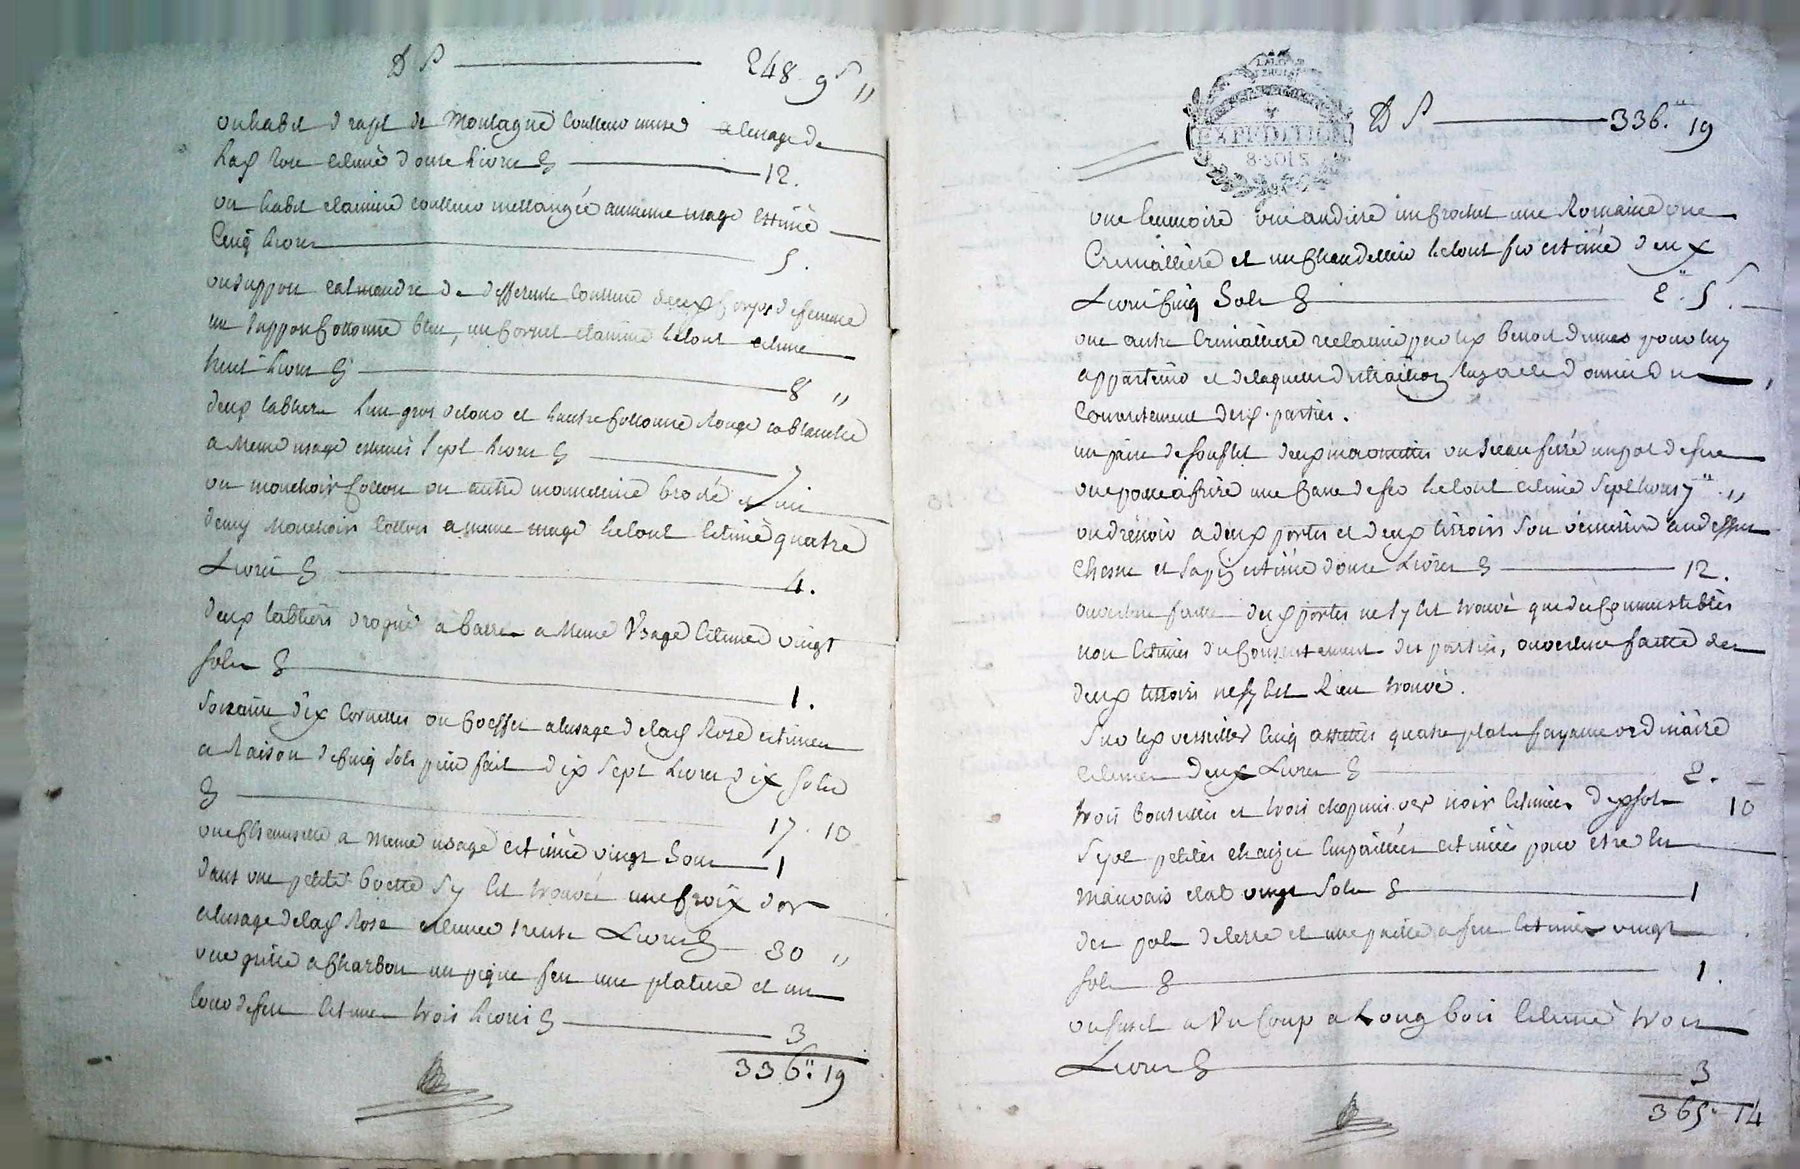 D P 248 9s "
un habit drapt de Montagne couleur musc a lusage de
lad Rose estimé douze Livres 12.
un habit etamine couleur mellangée au meme usage estimé
Cinq Livres 5.
un juppon calmandre de differente couleur deux corps de femme
un juppon cottonne bleu, un cornet etamine le tout estimé
huit Livres 8 "
deux tabliers lun gros de tour et lautre cottonne Rouge et blanche
a meme usage estimés Sept Livres 7
un mouchoir cotton un autre mousseline brodé et un
demy Mouchoir cotton a meme usage le tout estimé quatre
Livres 4.
deux tabliers droguet à barres a Meme Usage estimes vingt
sols 1.
Soixante dix Cornettes ou Coeffes a lusage de lad Rose estimées
a Raison de cinq sols piece fait dix sept Livres dix sols
17. 10
une Chemisette a meme usage estimée vingt Sous 1
dans une petite boette sy est trouvée une Croix dor
a lusage de lad Rose estimée trente Livres 30 "
une grille a Charbon un pique feu une platine et un
tour de feu estimes trois Livres 3
336." 19
LALOI
EXPEDITION
8. SOLS
D P 336." 19
une une andiere un Crochet une Romaine une
Cremalliere et un Chandellier le tout fer estimé deux
Livres Cinq Sols 2." 5.
une autre Cremalliere reclamée par led benoit Dumas pour luy
appartenir et de laquelle distraction luy a été donnée du
Consentement des parties.
un paire de souflet deux marmittes un seau ferré un pot de fer
une poele à frire une Casse de fer le tout estimé Sept livres 7" "
un dressoir a deux portes et deux tirroirs Son vaisselier au dessus
Chesne et Sapin estimé douze Livres 12.
ouverture faitte des portes ne sy est trouvé que des Commestibles
non estimés du Consentement des parties, ouverture faitte des
deux tirroirs ne sy est Rien trouvé.
Sur led vesselier Cinq assiettes quatre plats fayance ordinaire
estimés deux Livres 2.
trois bouteilles et trois chopines ver noir estimées dix sols 10
Sept petites chaizes empaillées estimées pour etre en
mauvais etat vingt Sols 1
des pots de terre et une paelle a feu estimés vingt
sols 1.
un fusil a Un Coup a Long bois estimé trois
Livres 3
365. 14